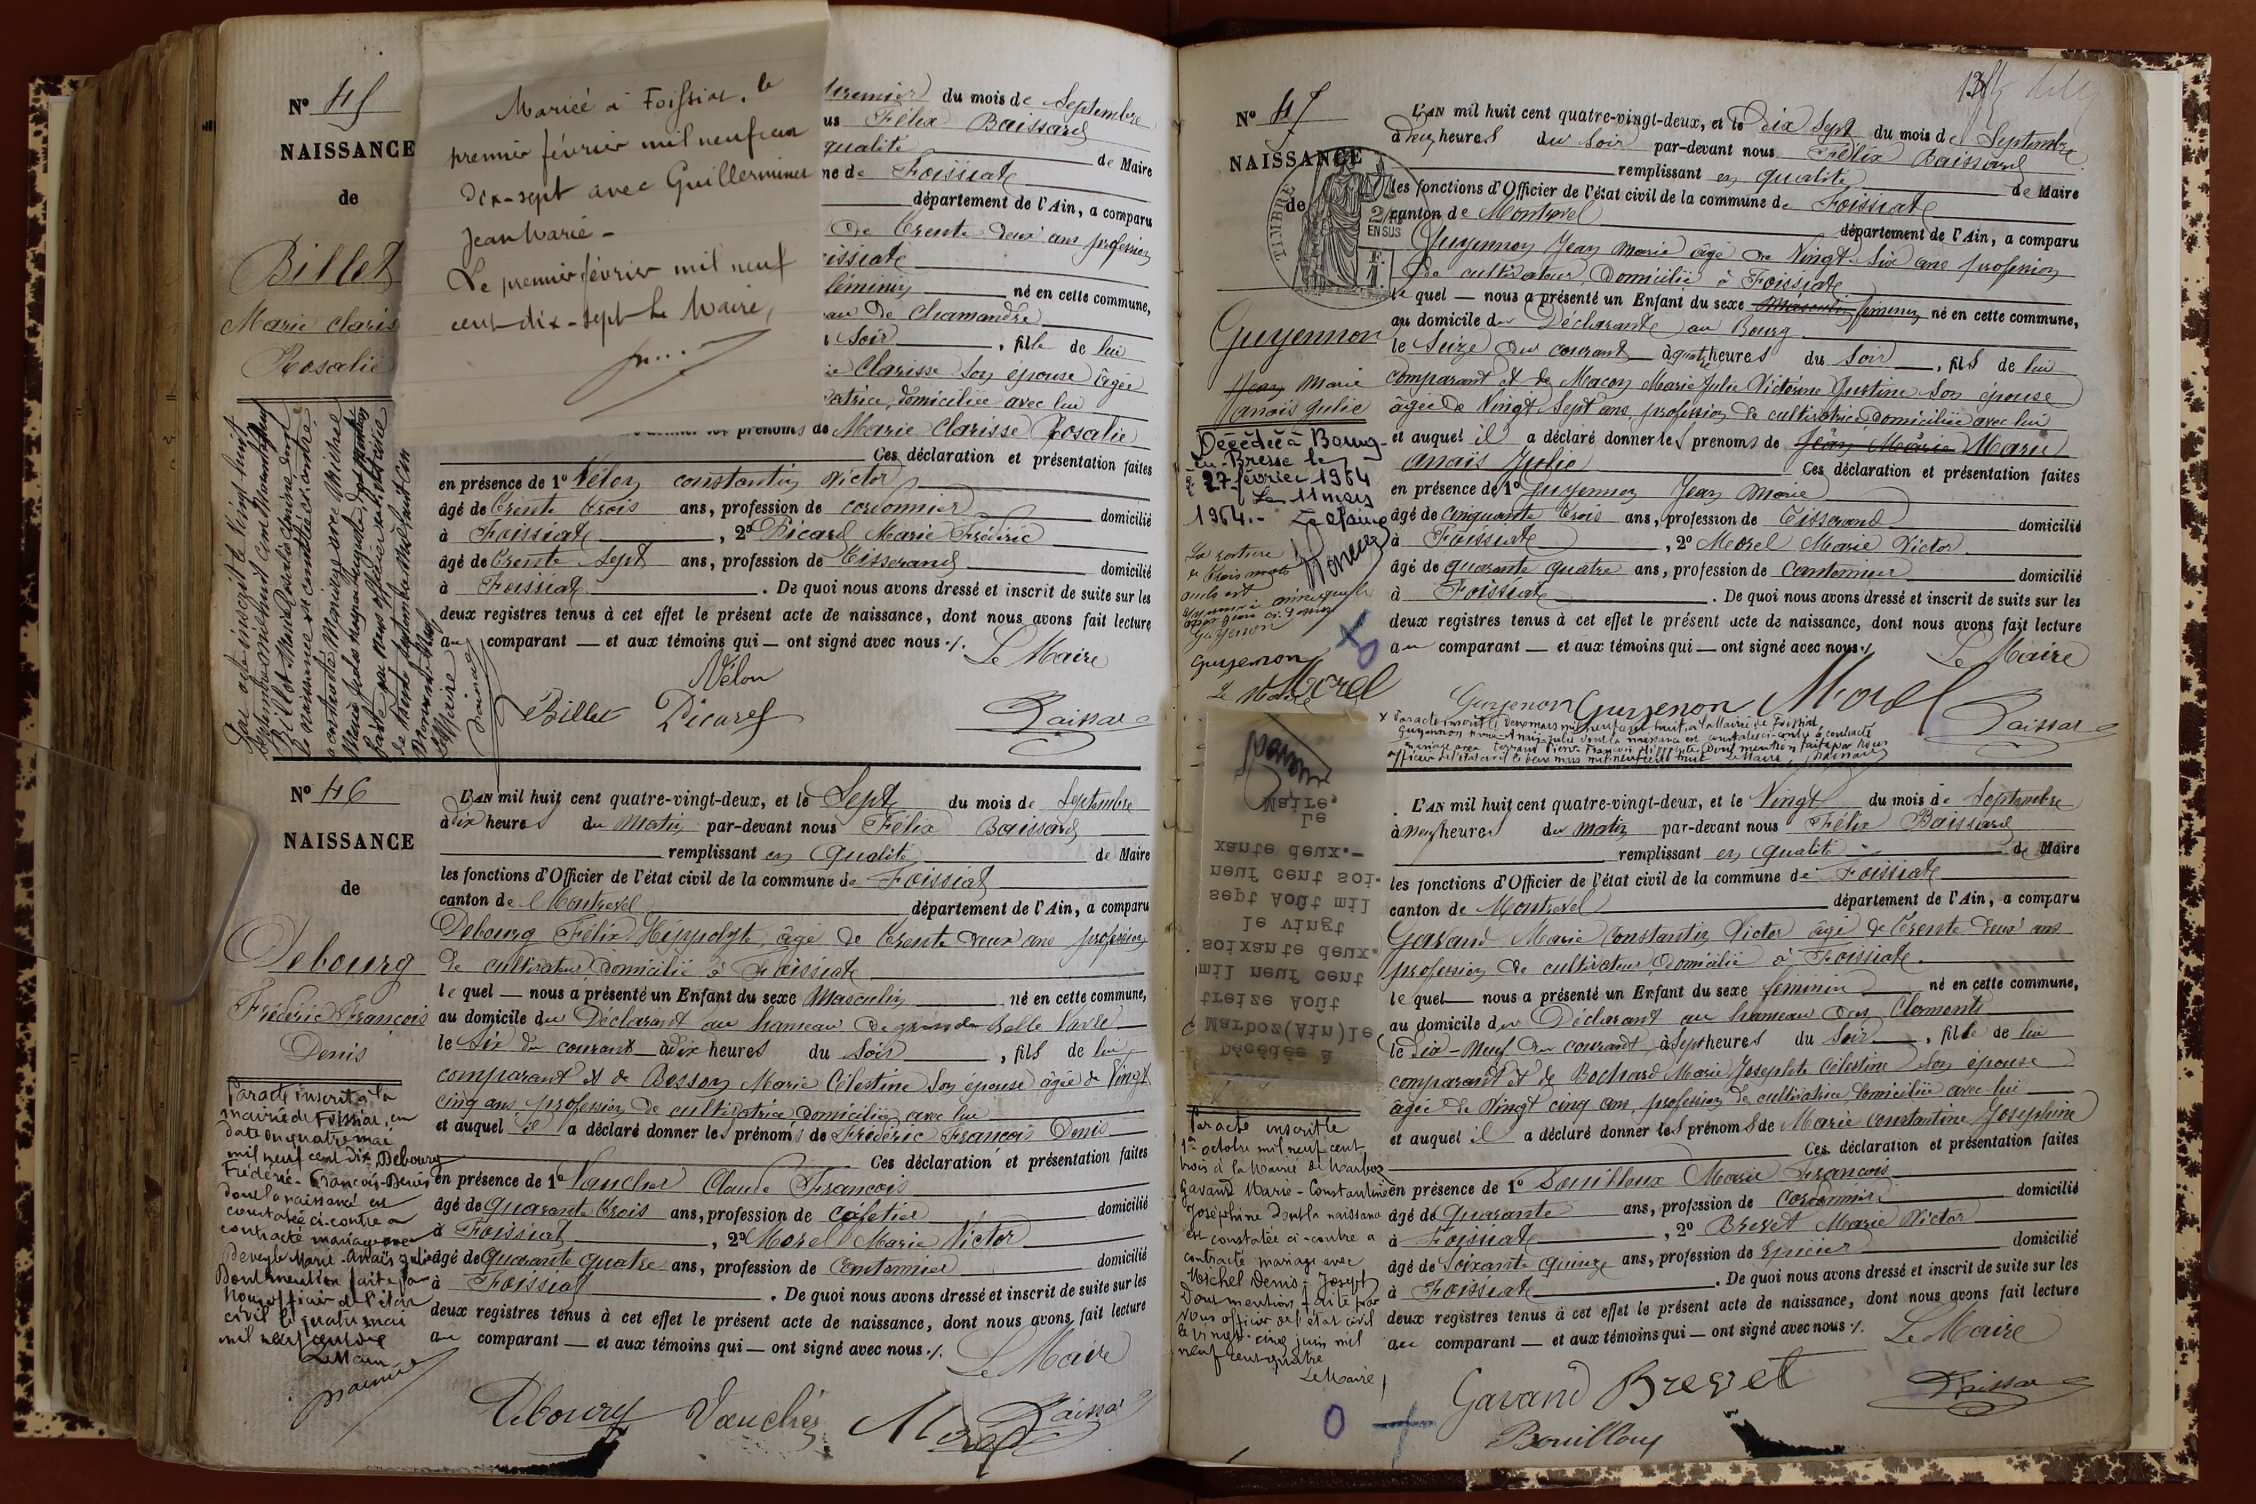 N° 45
NAISSANCE
de
Billet
Marie Claris
Rosalie
Mariée à Foissiat, le
premier février mil neuf cent
dix-sept avec Guillerminet
Jean Marie -
Le premier février mil neuf
cent-dix-sept Le Maire,
premier du mois de Septembre
us Félix Baissard
qualité de Maire
ne de Foissiat
département de l'Ain, a comparu
de trente deux ans profession
issiat
féminin né en cette commune,
au de Chamandre
Soir , fille de lui
ie Clarisse son épouse âgée
vatrice, domiciliée avec lui
prénoms de Marie Clarisse Rosalie
Ces déclaration et présentation faites
en présence de 1° Vélon constantin victor
âgé de trente trois ans, profession de cordonnier domicilié
à Foissiat , 2° Picard Marie Frédéric
âgé de trente sept ans, profession de tisserand domicilié
à Foissiat . De quoi nous avons dressé et inscrit de suite sur les
deux registres tenus à cet effet le présent acte de naissance, dont nous avons fait lecture
au comparant — et aux témoins qui — ont signé avec nous ./.
Le Maire
Vélon
Billet Picard
N° 46
NAISSANCE
de
Debourg
Frédéric François
Denis
Par acte inscrit à la
mairie de Foissiat, en
date du quatre mai
mil neuf cent dix, Debourg
Frédéric-François-Denis
dont la naissance est
constatée ci-contre a
contracté mariage avec
Marie-Anaïs Julie
Dont mention faite par
Nous officier de l'état
civil le quatre mai
mil neuf cent dix
Le Maire
L'AN mil huit cent quatre-vingt-deux, et le Sept du mois de Septembre
à dix heures du matin par-devant nous Félix Baissard
remplissant en qualité de Maire
les fonctions d'Officier de l'état civil de la commune de Foissiat
canton de Montrevel département de l'Ain, a comparu
Debourg Félix Hippolyte, âgé de trente deux ans profession
de cultivateur domicilié à Foissiat
lequel — nous a présenté un Enfant du sexe Masculin né en cette commune,
au domicile du Déclarant au hameau de
le Six du courant à dix heures du Soir , fils de lui
comparant et de Besson Marie Célestine son épouse âgée de vingt
cinq ans profession de cultivatrice domiciliée avec lui
et auquel il a déclaré donner les prénoms de Frédéric François Denis
Ces déclaration et présentation faites
en présence de 1° Vaucher Claude François
âgé de quarante trois ans, profession de cafetier domicilié
à Foissiat , 2° Morel Marie Victor
âgé de quarante quatre ans, profession de Cantonnier domicilié
à Foissiat . De quoi nous avons dressé et inscrit de suite sur les
deux registres tenus à cet effet le présent acte de naissance, dont nous avons fait lecture
au comparant — et aux témoins qui — ont signé avec nous ./.
Le Maire
Debourg Vaucher Morel
N° 47
NAISSANCE
de
Guyennon
Jean Marie
anaïs Julie
Décédée à Bourg-
en-Bresse le
27 février 1964
Le 11 mars
1964.- Le Maire
Guyenon
Morel
Le Maire
L'AN mil huit cent quatre-vingt-deux, et le dix Sept du mois de Septembre
à deux heures du Soir par-devant nous Félix Baissard
remplissant en qualité de Maire
les fonctions d'Officier de l'état civil de la commune de Foissiat
canton de Montrevel
département de l'Ain, a comparu
Guyennon Jean Marie âgé de Vingt-Six ans profession
de cultivateur Domicilié à Foissiat.
lequel — nous a présenté un Enfant du sexe Masculin féminin né en cette commune,
au domicile du Déclarant au Bourg
le Seize du courant à quatre heures du Soir , fils de lui
comparant et de Macon Marie Julie Victorine Justine Son épouse
âgée de Vingt Sept ans, profession de cultivatrice, domiciliée avec lui
et auquel il a déclaré donner les prénoms de Jean Marie Marie
anaïs Julie Ces déclaration et présentation faites
en présence de 1° Guyennon Jean Marie
âgé de cinquante trois ans, profession de Tisserand domicilié
à Foissiat , 2° Morel Marie Victor
âgé de quarante quatre ans, profession de Cantonnier domicilié
à Foissiat . De quoi nous avons dressé et inscrit de suite sur les
deux registres tenus à cet effet le présent acte de naissance, dont nous avons fait lecture
au comparant — et aux témoins qui — ont signé avec nous ./.
Le Maire
Guyenon Guyenon Morel
Décédée à
Marboz(Ain)le
treize Août
mil neuf cent
soixante deux.
le vingt
sept Août mil
neuf cent soi-
xante deux.-
Le
Maire,
Par acte inscrit le
1er octobre mil neuf cent
trois à la Mairie de Marboz
Gavand Marie-Constantine
Joséphine dont la naissance
est constatée ci-contre a
contracté mariage avec
Michel Denis-Joseph
Dont mention faite par
Nous officier de l'état civil
le vingt-cinq juin mil
neuf cent quatre
Le Maire,
L'AN mil huit cent quatre-vingt-deux, et le Vingt du mois de Septembre
à neuf heures du matin par-devant nous Félix Baissard
remplissant en qualité de Maire
les fonctions d'Officier de l'état civil de la commune de Foissiat
canton de Montrevel département de l'Ain, a comparu
Gavand Marie Constantin Victor âgé de trente deux ans
profession de cultivateur, domicilié à Foissiat.
lequel — nous a présenté un Enfant du sexe féminin né en cette commune,
au domicile du Déclarant au hameau des Clements
le Dix-Neuf du courant, à Sept heures du Soir , fille de lui
comparant et de Bochard Marie Josephte Célestine son épouse
âgée de Vingt cinq ans, profession de cultivatrice domiciliée avec lui
et auquel il a déclaré donner les prénoms de Marie Constantine Joséphine
Ces déclaration et présentation faites
en présence de 1° Marie François
âgé de Quarante ans, profession de cordonnier domicilié
à Foissiat , 2° Brevet Marie Victor
âgé de Soixante Quinze ans, profession de Epicier domicilié
à Foissiat . De quoi nous avons dressé et inscrit de suite sur les
deux registres tenus à cet effet le présent acte de naissance, dont nous avons fait lecture
au comparant — et aux témoins qui — ont signé avec nous ./.
Le Maire
Gavand Brevet